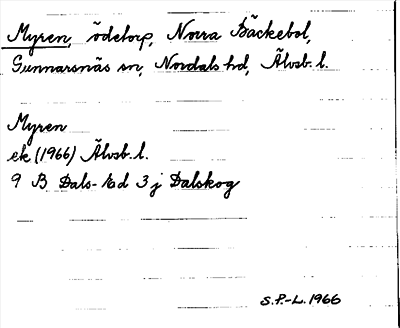 Myren, ödetorp, Norra Bäckebol,
Gunnarsnäs sn, Nordals hd, Älvsb. l.
Myren
ek (1966) Älvsb. l.
9 B Dals-Ed 3 j Dalskog
S.P.-L. 1966